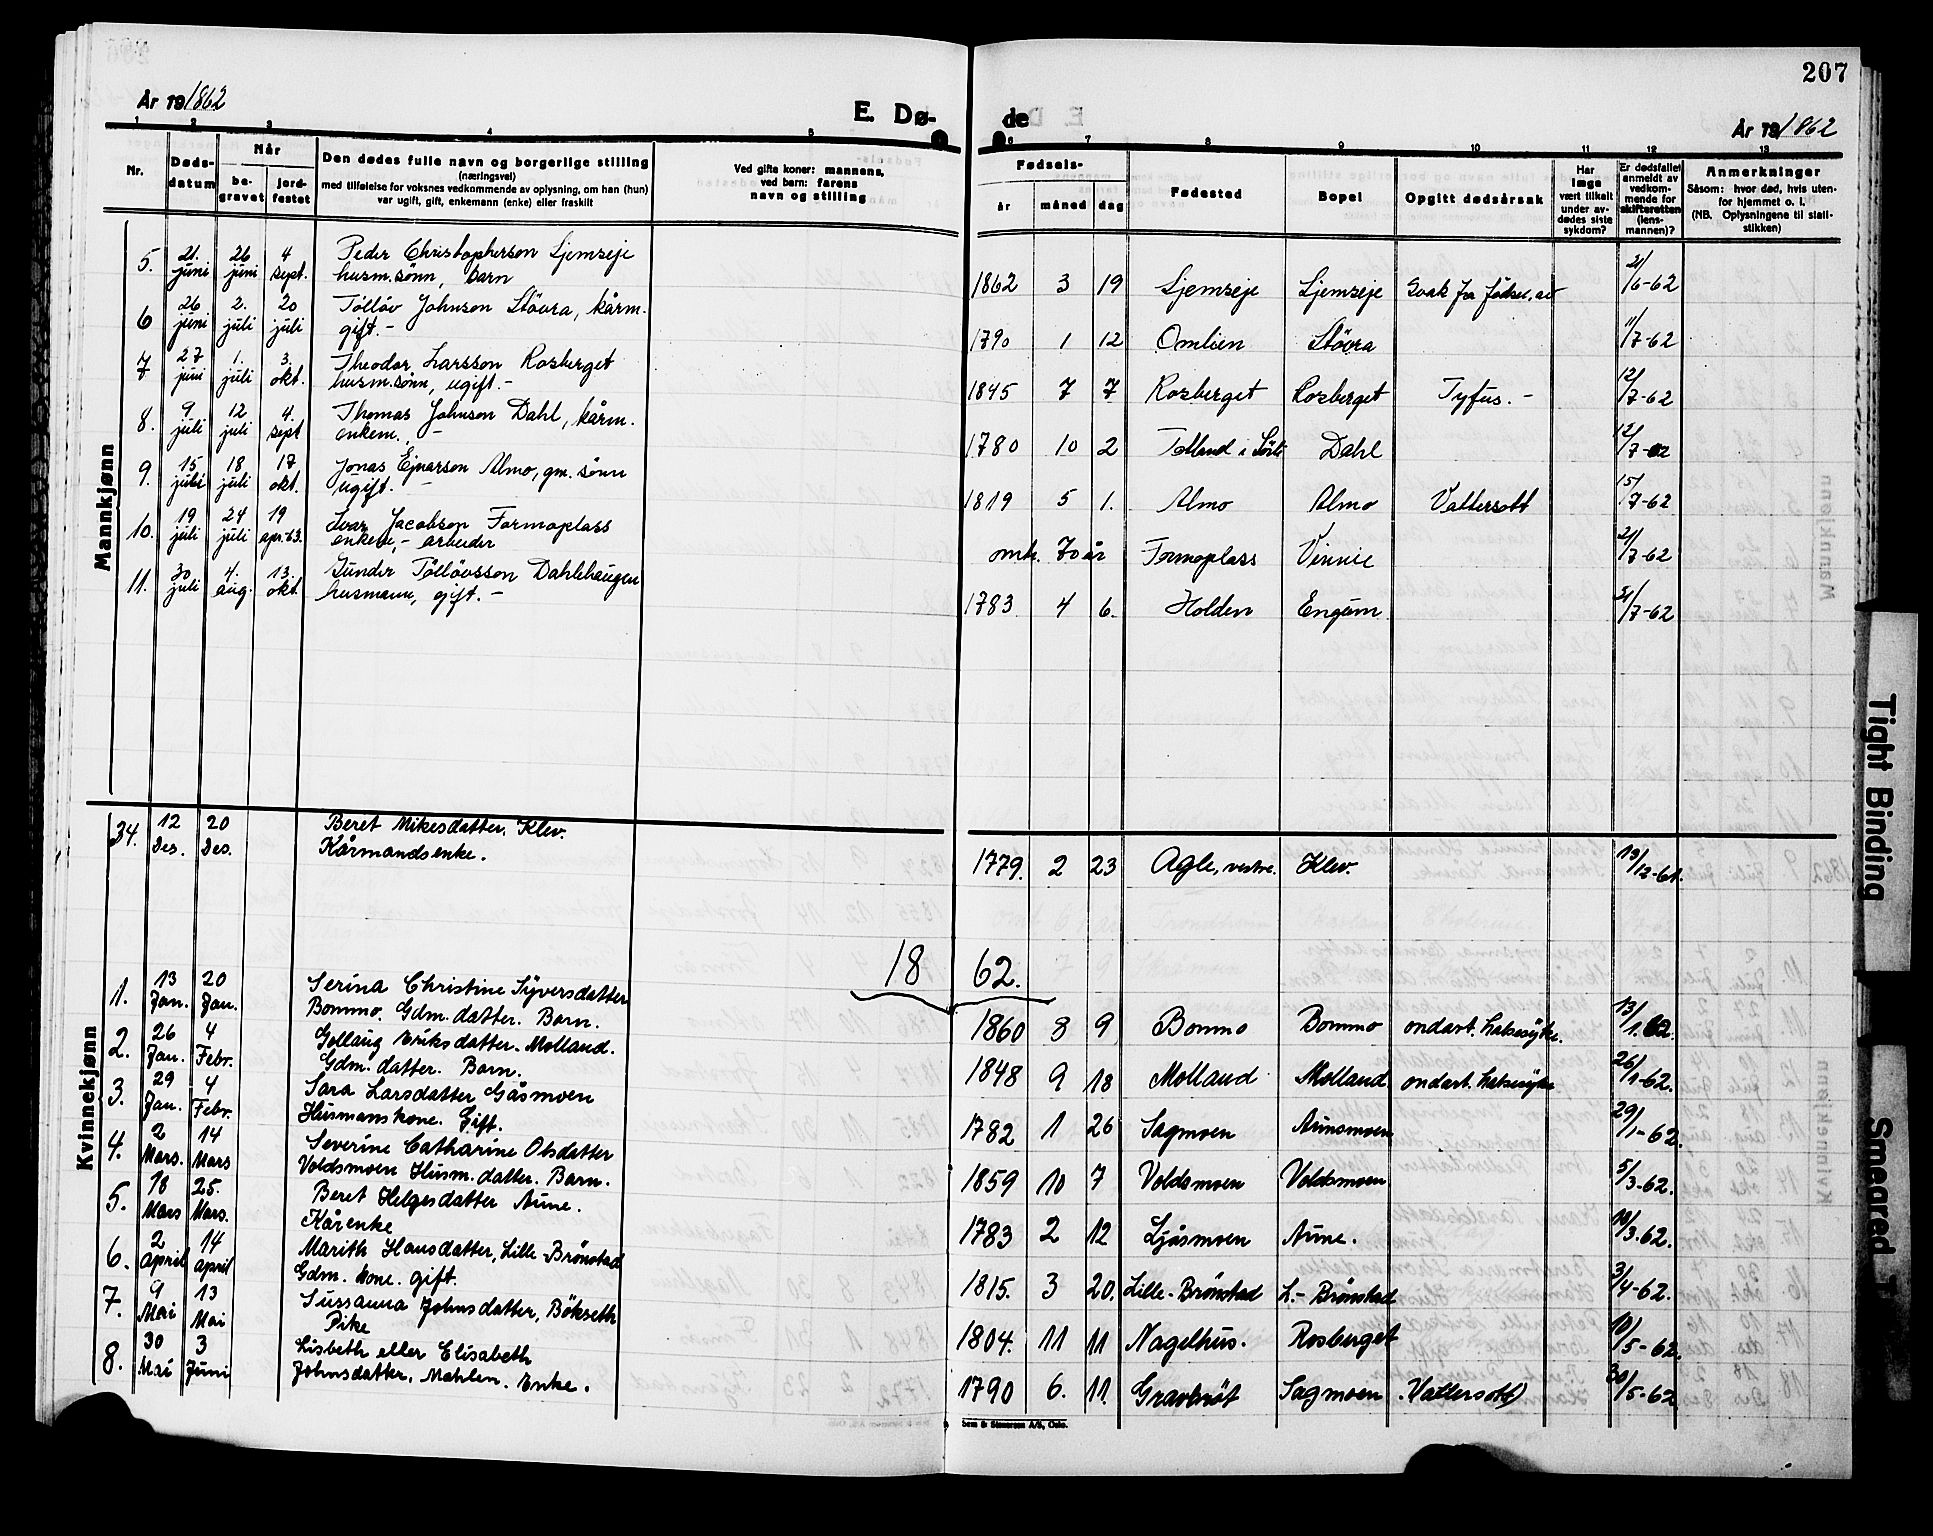 207
År 19 1862
E. Dø-
de
År 19 1862
1 2 3 4 5 6 7 8 9 10 11 12 13
Nr.
Døds-
datum
Når
be-
gravet
jord-
festet
Den dødes fulle navn og borgerlige stilling
(næringsvei)
med tilføielse for voksnes vedkommende av oplysning, om han (hun)
var ugift, gift, enkemann (enke) eller fraskilt
Ved gifte koner: mannens,
ved barn: farens
navn og stilling
Fødsels-
år
måned
dag
Fødested
Bopel
Opgitt dødsårsak
Har
læge
vært tilkalt
under av-
dødes siste
sykdom?
Er dødsfallet
anmeldt av
vedkom-
mende for
skifteretten
(lens-
mannen)?
Anmerkninger
Såsom: hvor død, hvis uten-
for hjemmet o. l.
(NB. Oplysningene til stali-
stikken)
Mannkjønn
5. 21. juni 26 juni 4 sept. Peder Christopherson Ljemseje
husm.sönn, barn
1862 3 19 Ljemseje Ljemseje Svak fra födsel, av 21/6-62
6 26 juni 2. juli 20 juli Tölløv Johnson Stövra, kårm.
gift.-
1790 1 12 Omlien Stövra 11/7-62
7 27 juni 1. juli 3. okt. Theodor Larsson Rosberget
husm.sönn, ugift.-
1845 7 7 Rosberget Rosberget Tyfus.- 12/7-62
8. 9 juli 12 juli 4. sept Thomas Johnson Dahl, kårm.
enkem.,-
1780 10 2 Tolland i Sörli Dahl 12/7-62
9. 15 juli 18 juli 17 okt. Jonas Ejnarson Almo, gm. sönn
ugift.-
1819 5 1. Almo Almo Vattersott 15/7-62
10. 19 juli 24 juli 19 apr.63. Ivar Jacobson Formoplass
enkem,- arbeider
omtr. 70 år Formoplass Vinnie 21/7-62
11. 30 juli 4. aug. 13. okt. Gunder Tölløvsson Dahlehaugen
husmann, gift.-
1783 4 6. Holden Engum 31/7-62
Kvinnekjønn
34. 12 Des. 20 Des. Beret Mikesdatter, Klev.
Kårmandsenke.
1779. 2 23 Agle, vestre. Klev. 19/12-61.
18 62.
1. 13 Jan. 20 Jan. Serina Christine Syversdatter
Bommo. Gdm. datter. Barn.
1860 8 9 Bommo Bommo ondart. halssyke. 13/1.62.
2. 26 Jan. 4 Febr. Gollaug Eriksdatter. Molland.
Gdm. datter. Barn.
1848 9 18 Molland Molland. ondart. halssyke 26/1-62.
3. 29 Jan. 4 Febr. Sara Larsdatter Gåsmoen
Husmanskone. Gift.
1782 1 26 Sagmoen Aunsmoen 29/1-62.
4. 2 Mars. 14 Mars Severine Catharine Olsdatter
Voldsmoen Husm. datter. Barn.
1859 10 7 Voldsmoen Voldsmoen 5/3-62.
5. 18 Mars 25. Mars. Beret Helgesdatter Aune.
Kårenke
1783 2 12 Ljåsmoen Aune. 19/3.62.
6. 2 April 14 April Marith Hansdatter, Lille-Brönstad
Gdm. kone. gift.
1815. 3 20. Lille-Brönstad L.-Brönstad 3/4-62.
7. 9 Mai 13 Mai Sussanna Johnsdatter, Bökseth
Pike
1804. 11 11 Nagelhus. Rosberget 10/5-62.
8. 30 Mai 3 Juni Lisbeth eller Elisabeth
Johnsdatter. Mahlen. Enke.
1790 6. 11. Gravbröt Sagmoen Vattersott 30/5-62
Sem & Stenersen A/S, Oslo.
Tight Binding
Smeared T